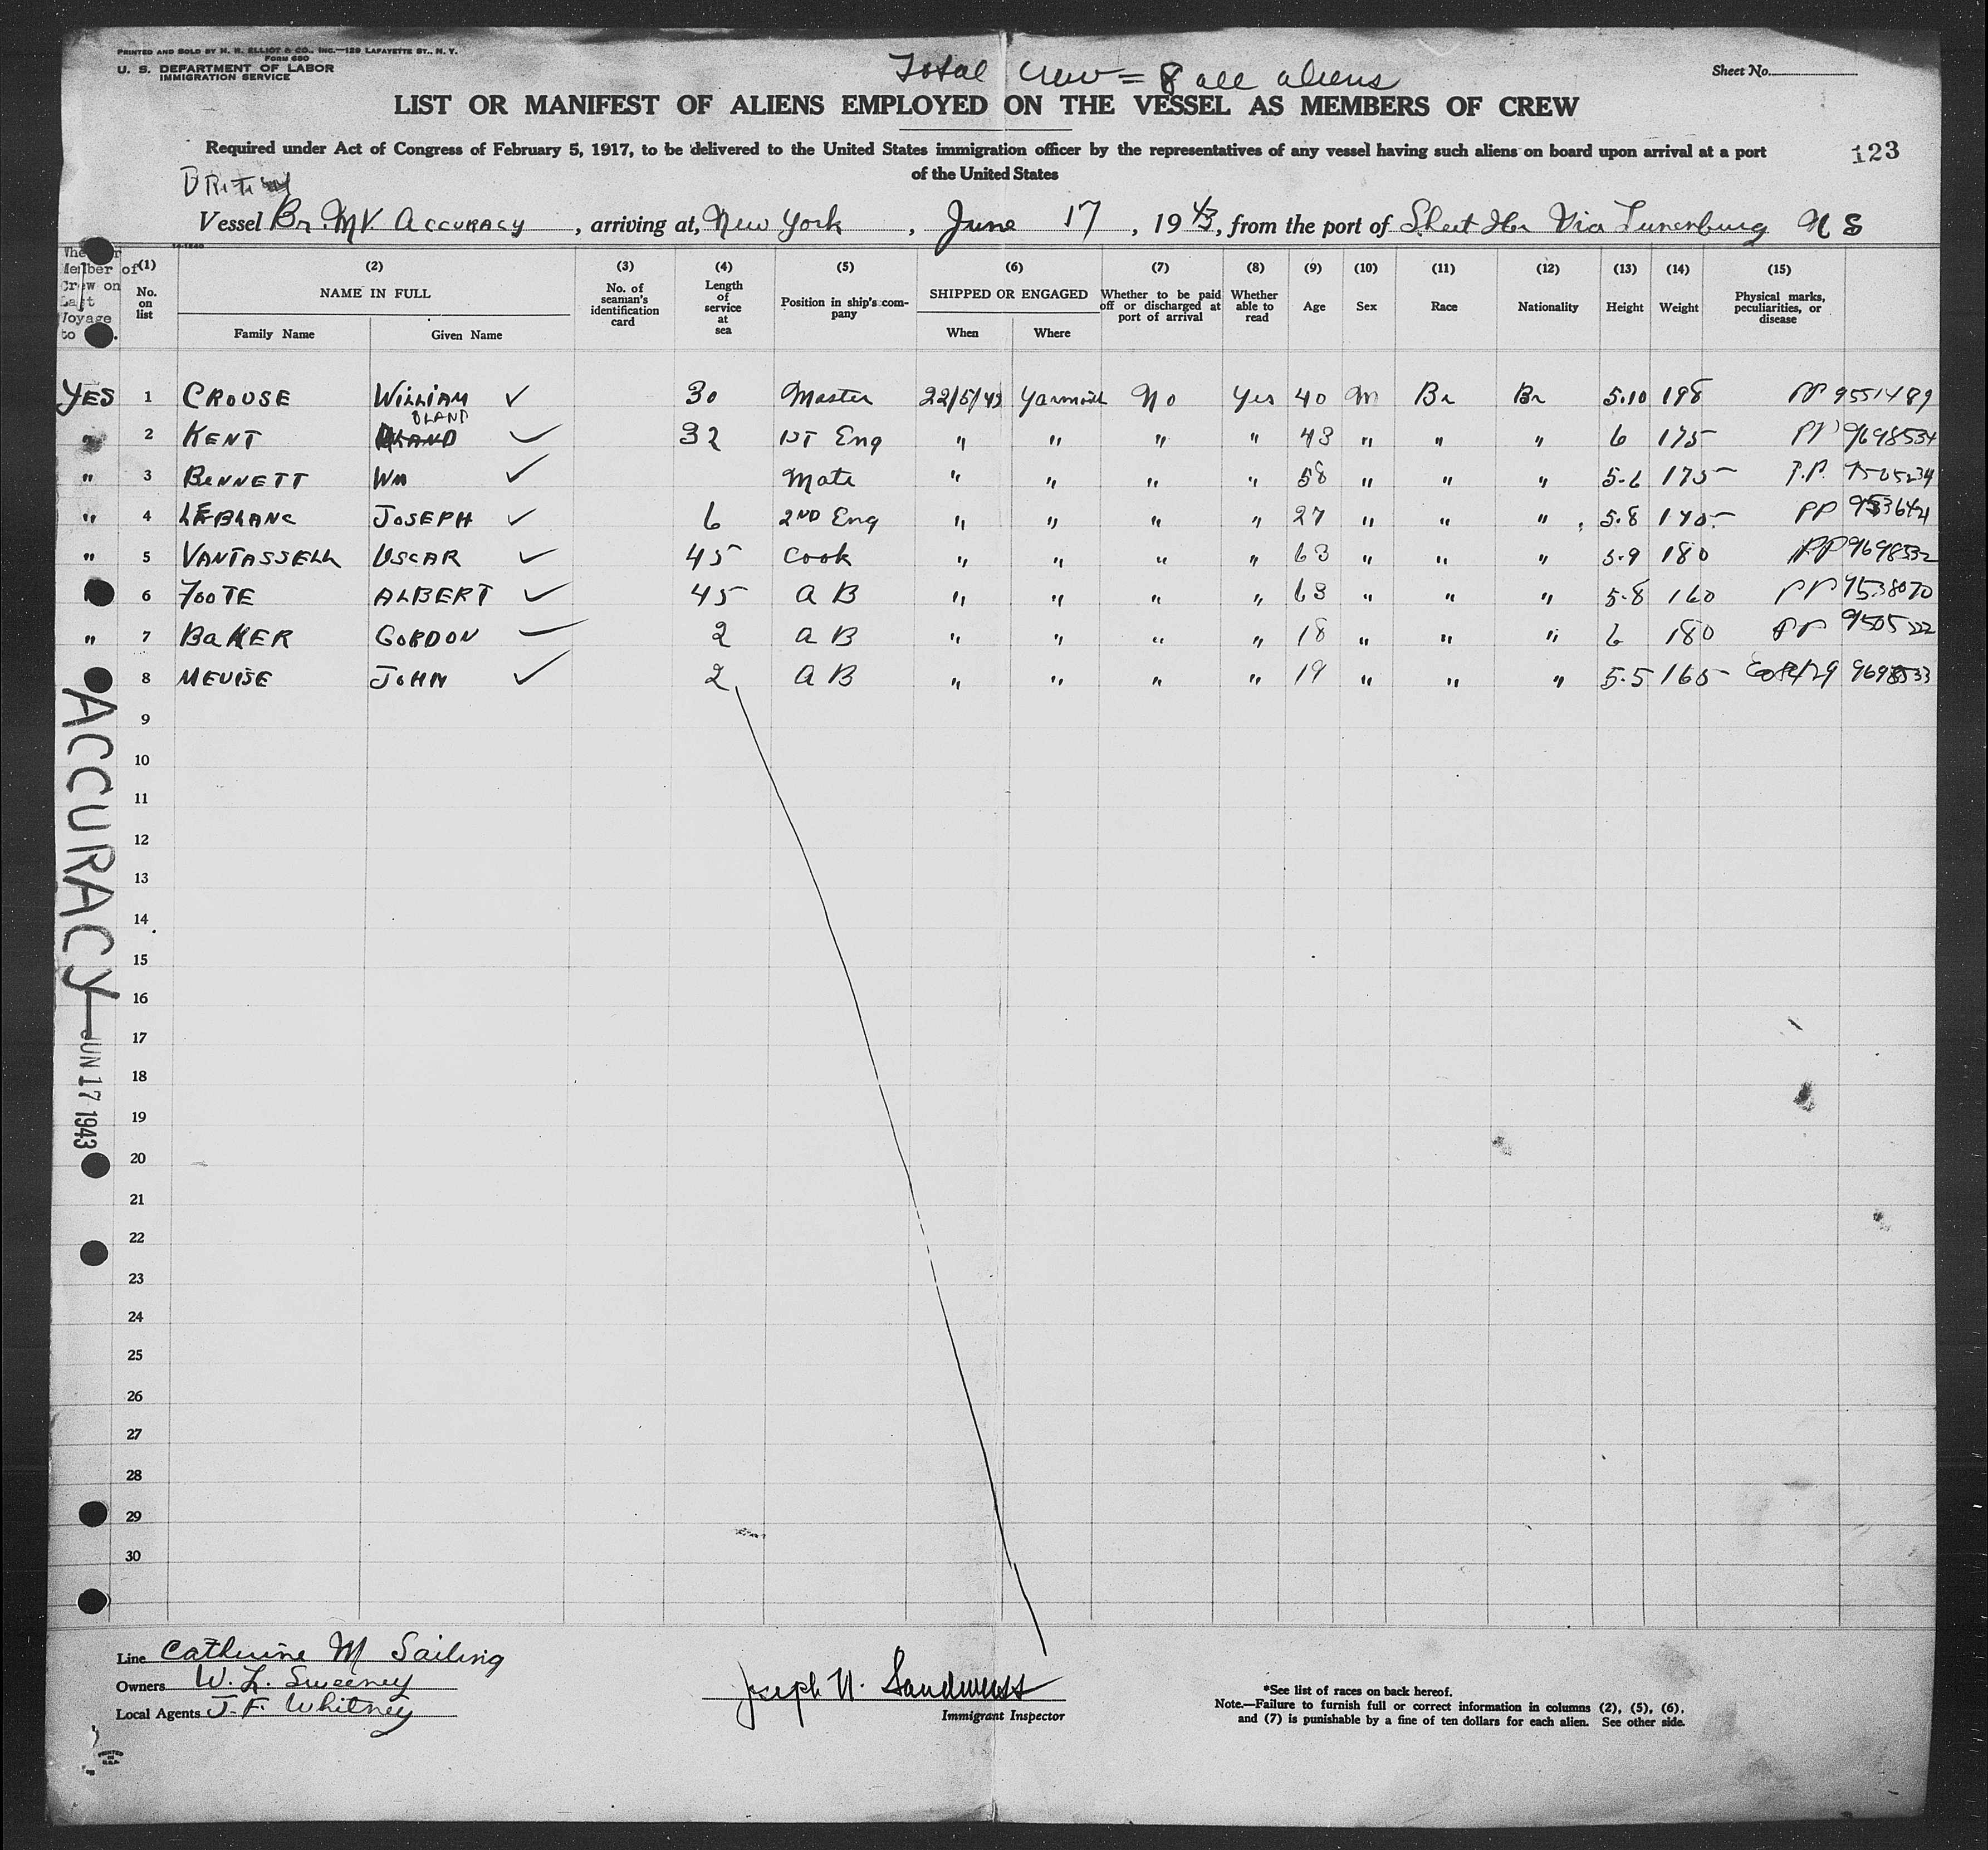 PRINTED AND SOLD BY N. R. ELLIOT & CO., INC.—129 LAFAYETTE ST., N. Y.
FORM 680
U. S. DEPARTMENT OF LABOR
IMMIGRATION SERVICE
Total Crew = 8 all aliens
Sheet No.
LIST OR MANIFEST OF ALIENS EMPLOYED ON THE VESSEL AS MEMBERS OF CREW
123
Required under Act of Congress of February 5, 1917, to be delivered to the United States immigration officer by the representatives of any vessel having such aliens on board upon arrival at a port
of the United States
Vessel Br. MV. ACCURACY, arriving at, New York, June 17, 1943, from the port of Sheet Hbr Via Lunenburg N S
Member of Crew on Last Voyage to
(1) No. on list
(2) NAME IN FULL Family Name Given Name
(3) No. of seaman's identification card
(4) Length of service at sea
(5) Position in ship's company
(6) SHIPPED OR ENGAGED When Where
(7) Whether to be paid off or discharged at port of arrival
(8) Whether able to read
(9) Age
(10) Sex
(11) Race
(12) Nationality
(13) Height
(14) Weight
(15) Physical marks, peculiarities, or disease
YES 1 CROUSE WILLIAM ✓ 30 Master 22/5/43 Yarmouth No Yes 40 M Br Br 5.10 198 PP 9551489
2 KENT BLAND ✓ 32 1ST Eng " " " " 43 " " " 6 175 PP 9698534
" 3 BENNETT WM ✓ Mate " " " " 58 " " " 5.6 175 P.P.
" 4 LEBLANC JOSEPH ✓ 6 2ND Eng " " " " 27 " " " 5.8 PP
" 5 VANTASSELL OSCAR ✓ 45 Cook " " " " 63 " " " 5.9 180 PP 9698532
6 FOOTE ALBERT ✓ 45 A B " " " " 63 " " " 5.8 160 PP 9538070
" 7 BAKER GORDON ✓ 2 A B " " " " 18 " " " 6 180 PP
8 MEUISE JOHN ✓ 2 A B " " " " 19 " " " 5.5 165 9698533
9
10
11
12
13
14
15
16
17
18
19
20
21
22
23
24
25
26
27
28
29
30
ACCURACY — JUN 17 1943
Line Catherine M Sailing
Owners W. L. Sweeney
Local Agents J. F. Whitney
Joseph
Immigrant Inspector
*See list of races on back hereof.
Note.—Failure to furnish full or correct information in columns (2), (5), (6),
and (7) is punishable by a fine of ten dollars for each alien. See other side.
PRINTED
IN
U.S.A.